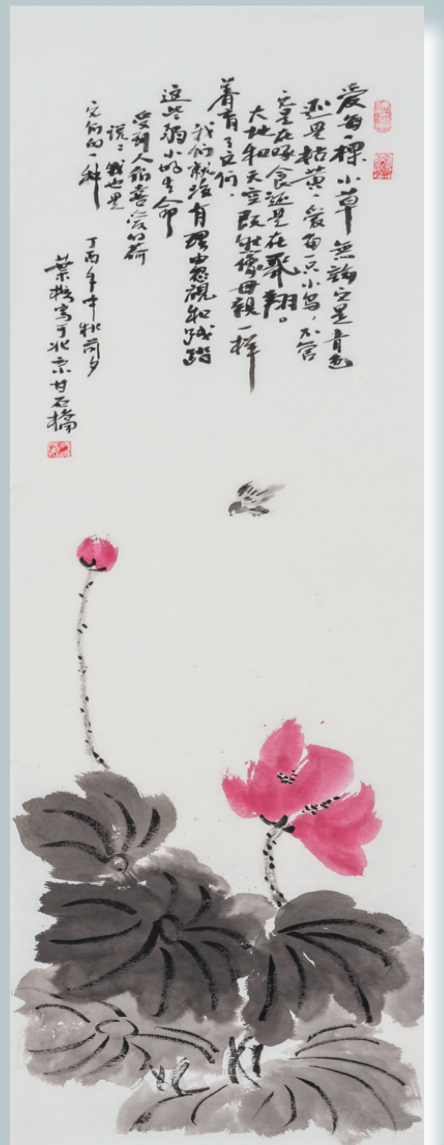 爱每一棵小草 無論它是青葱
还是枯黄，爱每一只小鸟，不管
它是在啄食还是在飛翔。
大地和天空既然像母親一样
養育了它们，
我们就没有理由忽視和践踏
这些弱小的生命
受到人们喜爱的荷
說：我也是
它们的一种
丁 年中秋前夕
葉 写于北京甘石橋